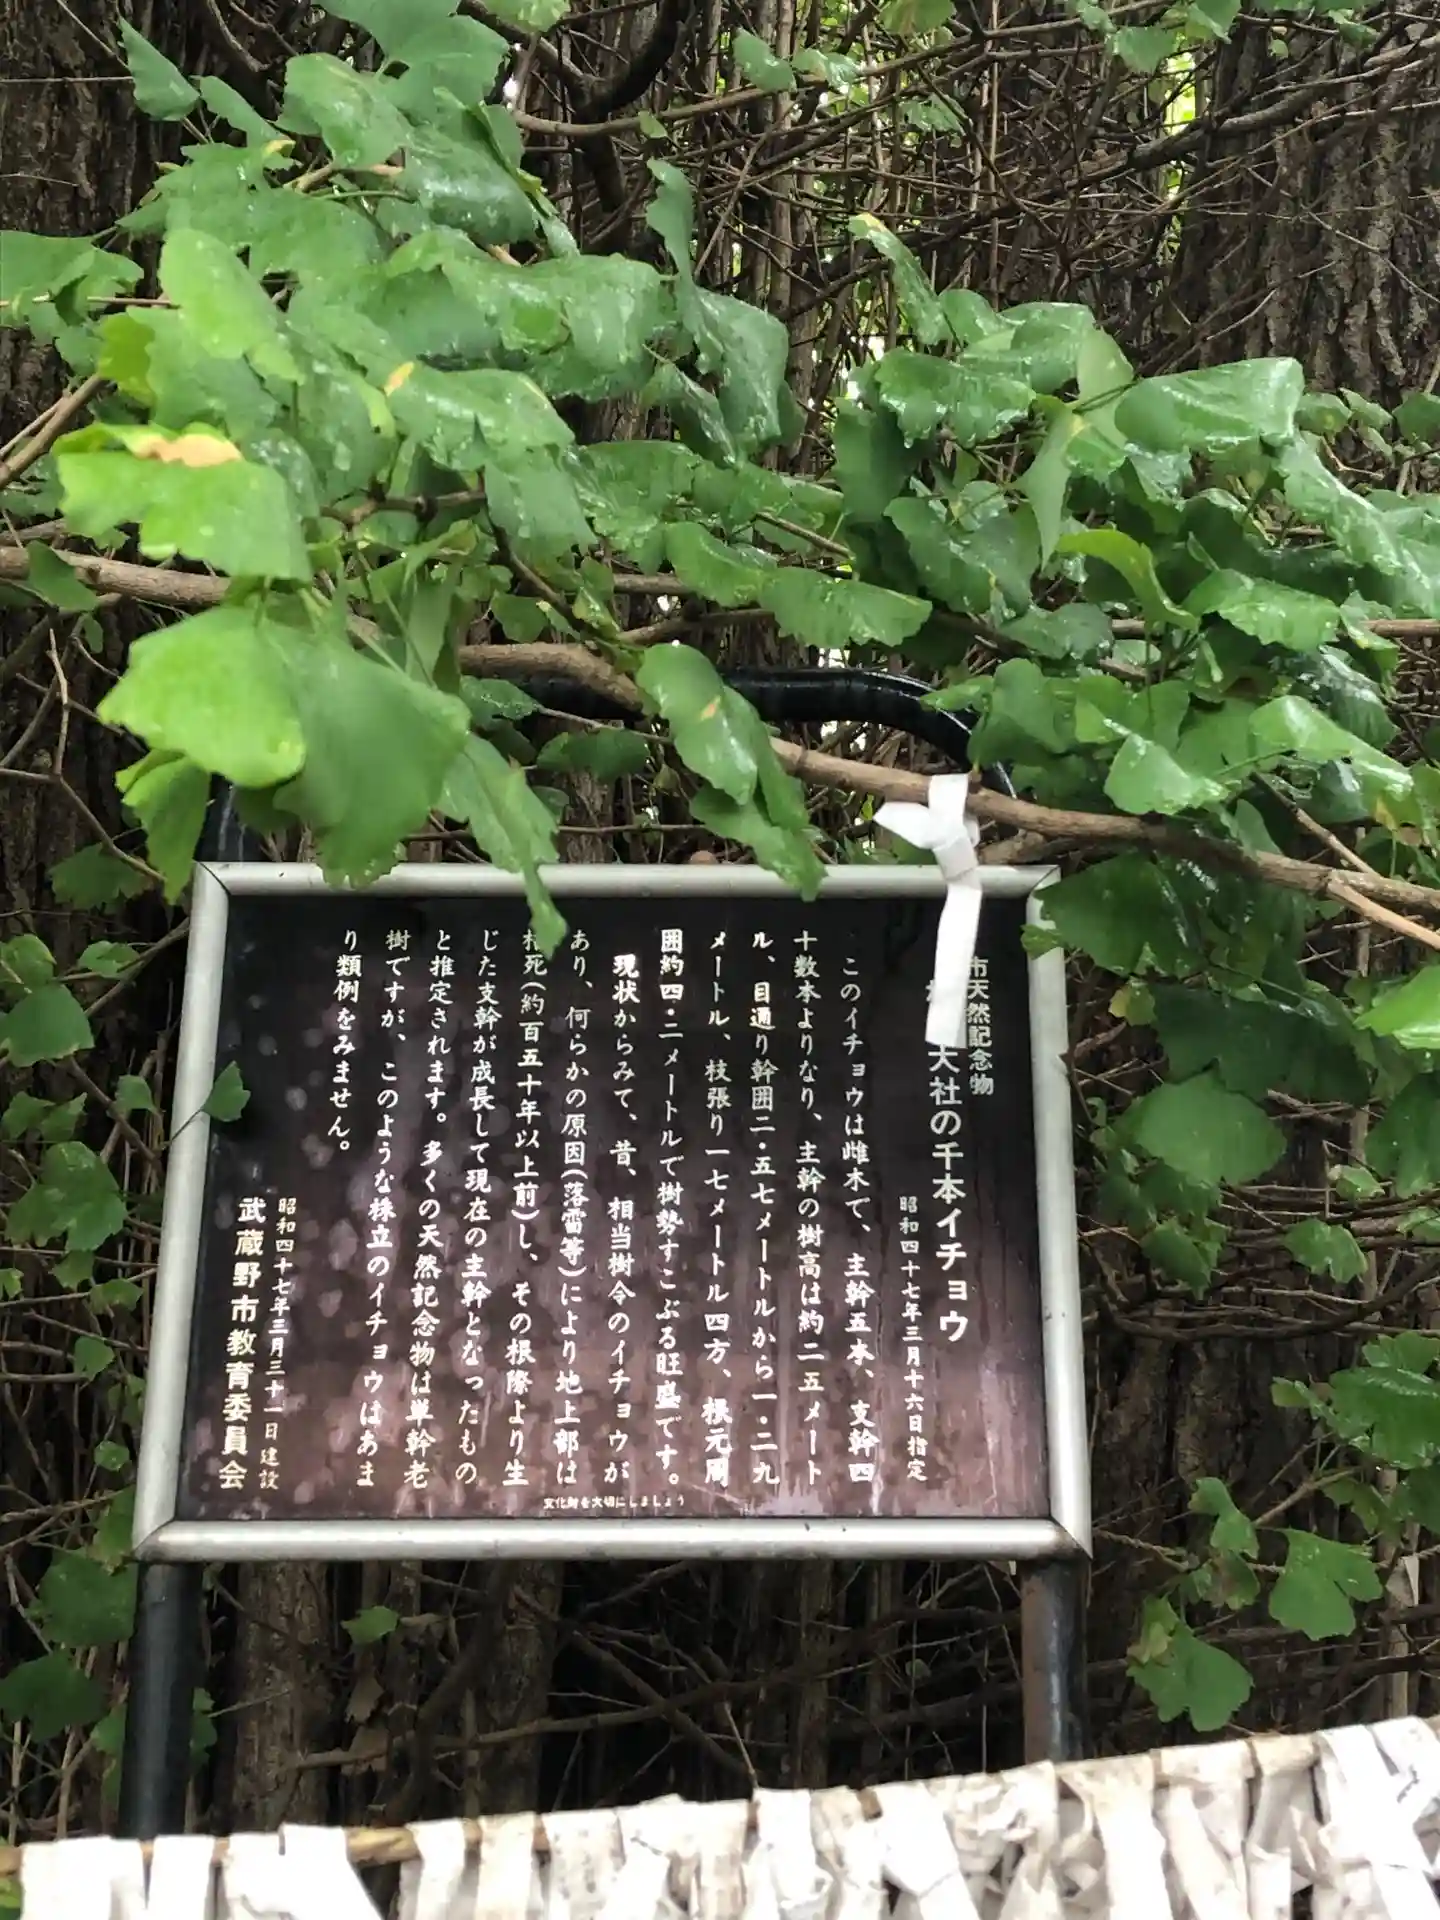 市天然記念物
大社の千本イチョウ
昭和四十七年三月十六日指定
このイチョウは雌木で、主幹五本、支幹四
十数本よりなり、主幹の樹高は約二五メート
ル、目通り幹囲二・五七メートルから一・二九
メートル、枝張り一七メートル四方、根元周
囲約四・二メートルで樹勢すこぶる旺盛です。
現状からみて、昔、相当樹令のイチョウが
あり、何らかの原因(落雷等)により地上部は
枯死(約百五十年以上前)し、その根際より生
じた支幹が成長して現在の主幹となったもの
と推定されます。多くの天然記念物は単幹老
樹ですが、このような株立のイチョウはあま
り類例をみません。
昭和四十七年三月三十一日建設
武蔵野市教育委員会
文化財を大切にしましょう